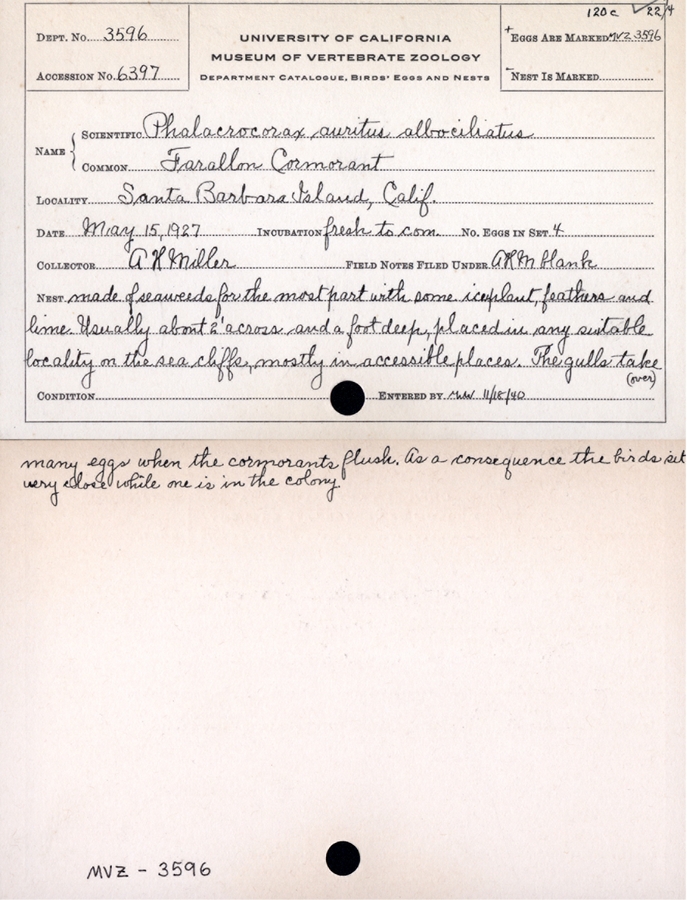 120c ✓ 22/4
DEPT. NO. 3596
ACCESSION NO. 6397
UNIVERSITY OF CALIFORNIA
MUSEUM OF VERTEBRATE ZOOLOGY
DEPARTMENT CATALOGUE, BIRDS' EGGS AND NESTS
+ EGGS ARE MARKED MVZ 3596
- NEST IS MARKED
NAME { SCIENTIFIC Phalacrocorax auritus albociliatus
COMMON Farallon Cormorant
LOCALITY Santa Barbara Island, Calif.
DATE May 15, 1927 INCUBATION fresh to com. NO. EGGS IN SET 4
COLLECTOR A H Miller FIELD NOTES FILED UNDER AHM blank
NEST made of seaweeds for the most part with some iceplant, feathers and
lime. Usually about 2' across and a foot deep, placed in any suitable
locality on the sea cliffs, mostly in accessible places. The gulls take
(over)
CONDITION ENTERED BY MW 11/18/40
many eggs when the cormorants flush. As a consequence the birds sit
very close while one is in the colony
MVZ - 3596